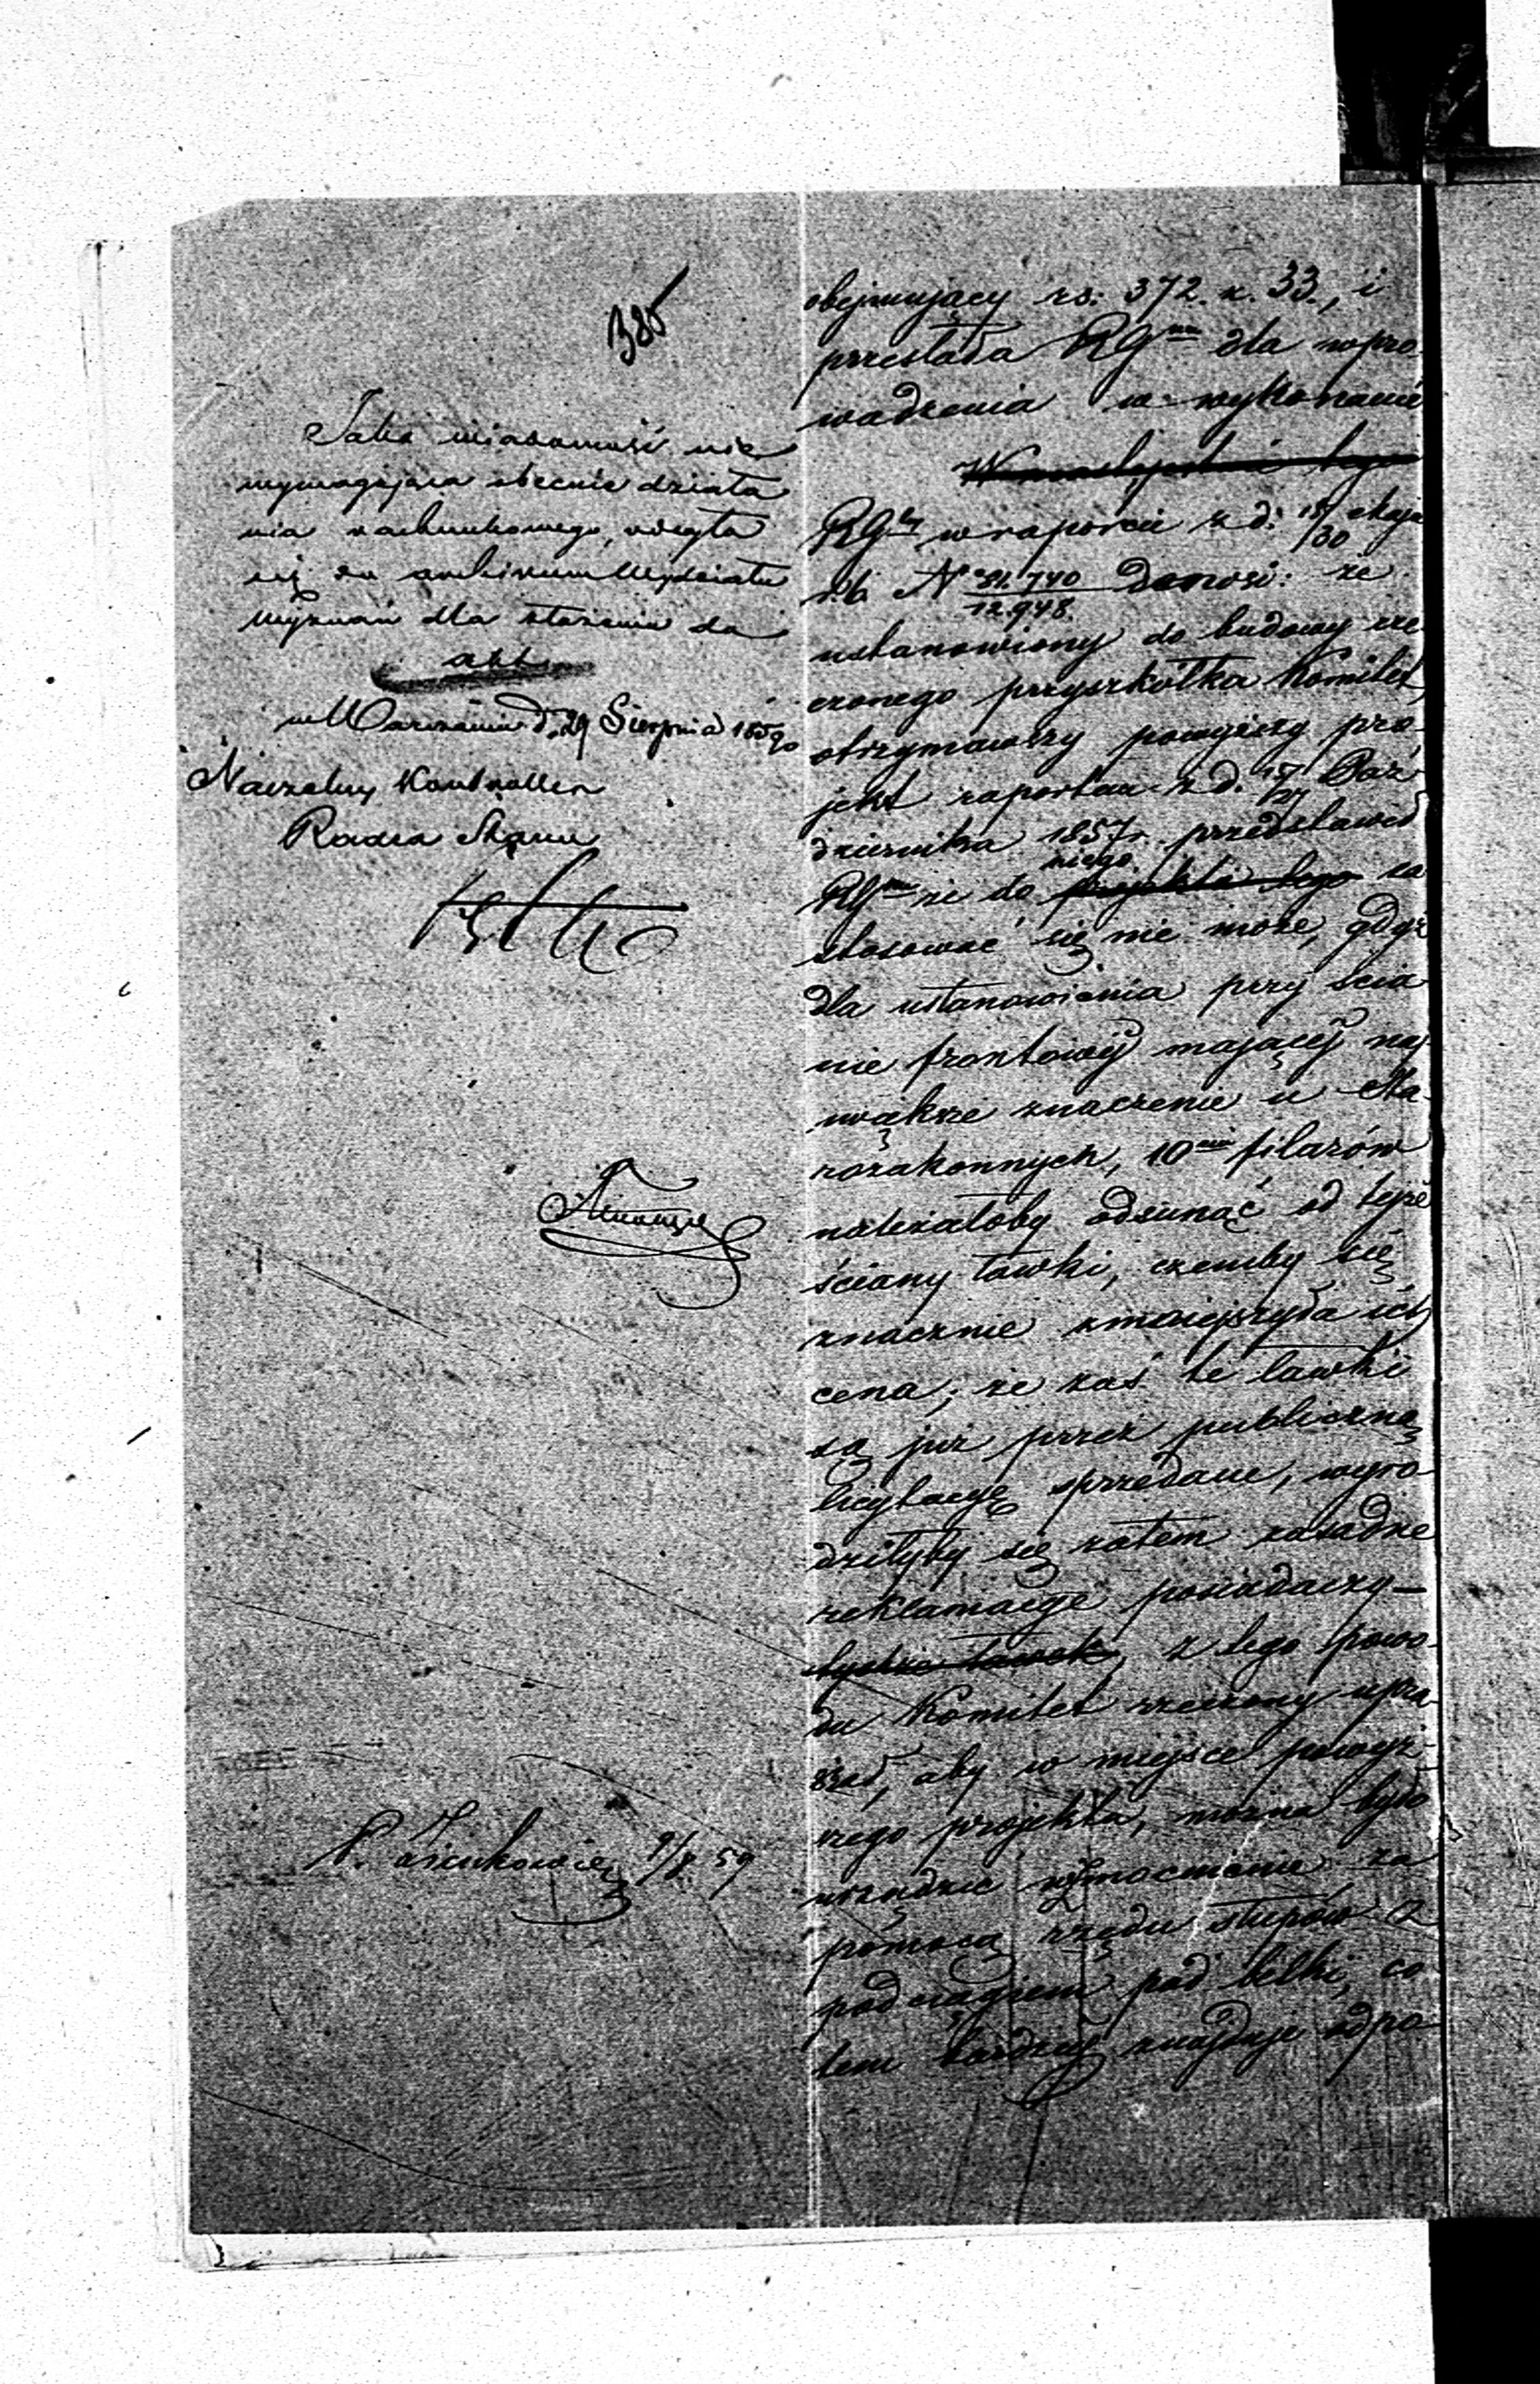 385
Jako wiadomość nie
wymagająca obecnie działa
nia rachunkowego, odsyła
się do archiwum Wydziału
Wyznań dla złożenia do
akt
w Warszawie d. 29 Sierpnia 1859
Naczelny Kontroller
Radca Stanu
9/8 59
obejmujący rs: 372. k. 33., i
przesłała RGmu dla wpro-
wadzenia w wykonanie
W następstwie tego
RGln w raporcie z d: 18/30 Maja
r.b. N 81.740/12.948. donosi: że
ustanowiony do budowy rze
czonego przyszkółka Komitet,
otrzymawszy powyższy pro-
jekt raportem z d. 15/27 Paź-
dziernika 1857r. przedstawił
RGmu że do niego projektu tego za
stosować się nie może, gdyż
dla ustanowienia przy ścia
nie frontowéj mającéj naj
większe znaczenie u Sta-
rozakonnych, 10ciu filarów
należałoby odsunąć od tejże
ściany ławki, czemby się
znacznie zmniejszyła ich
cena; że zaś te ławki
są już przez publiczną
licytacyę sprzedane, wyro-
dziłyby się zatem zasadne
reklamacye posiadaczy—
tychże ławek, z tego powo-
du Komitet rzeczony upra-
szał, aby w miejsce powyż-
szego projektu, można było
urządzić wzmocnienie za
pomocą rzędu słupów z
podciągiem pod belki, co
tem bardziéj znajduje odpo-